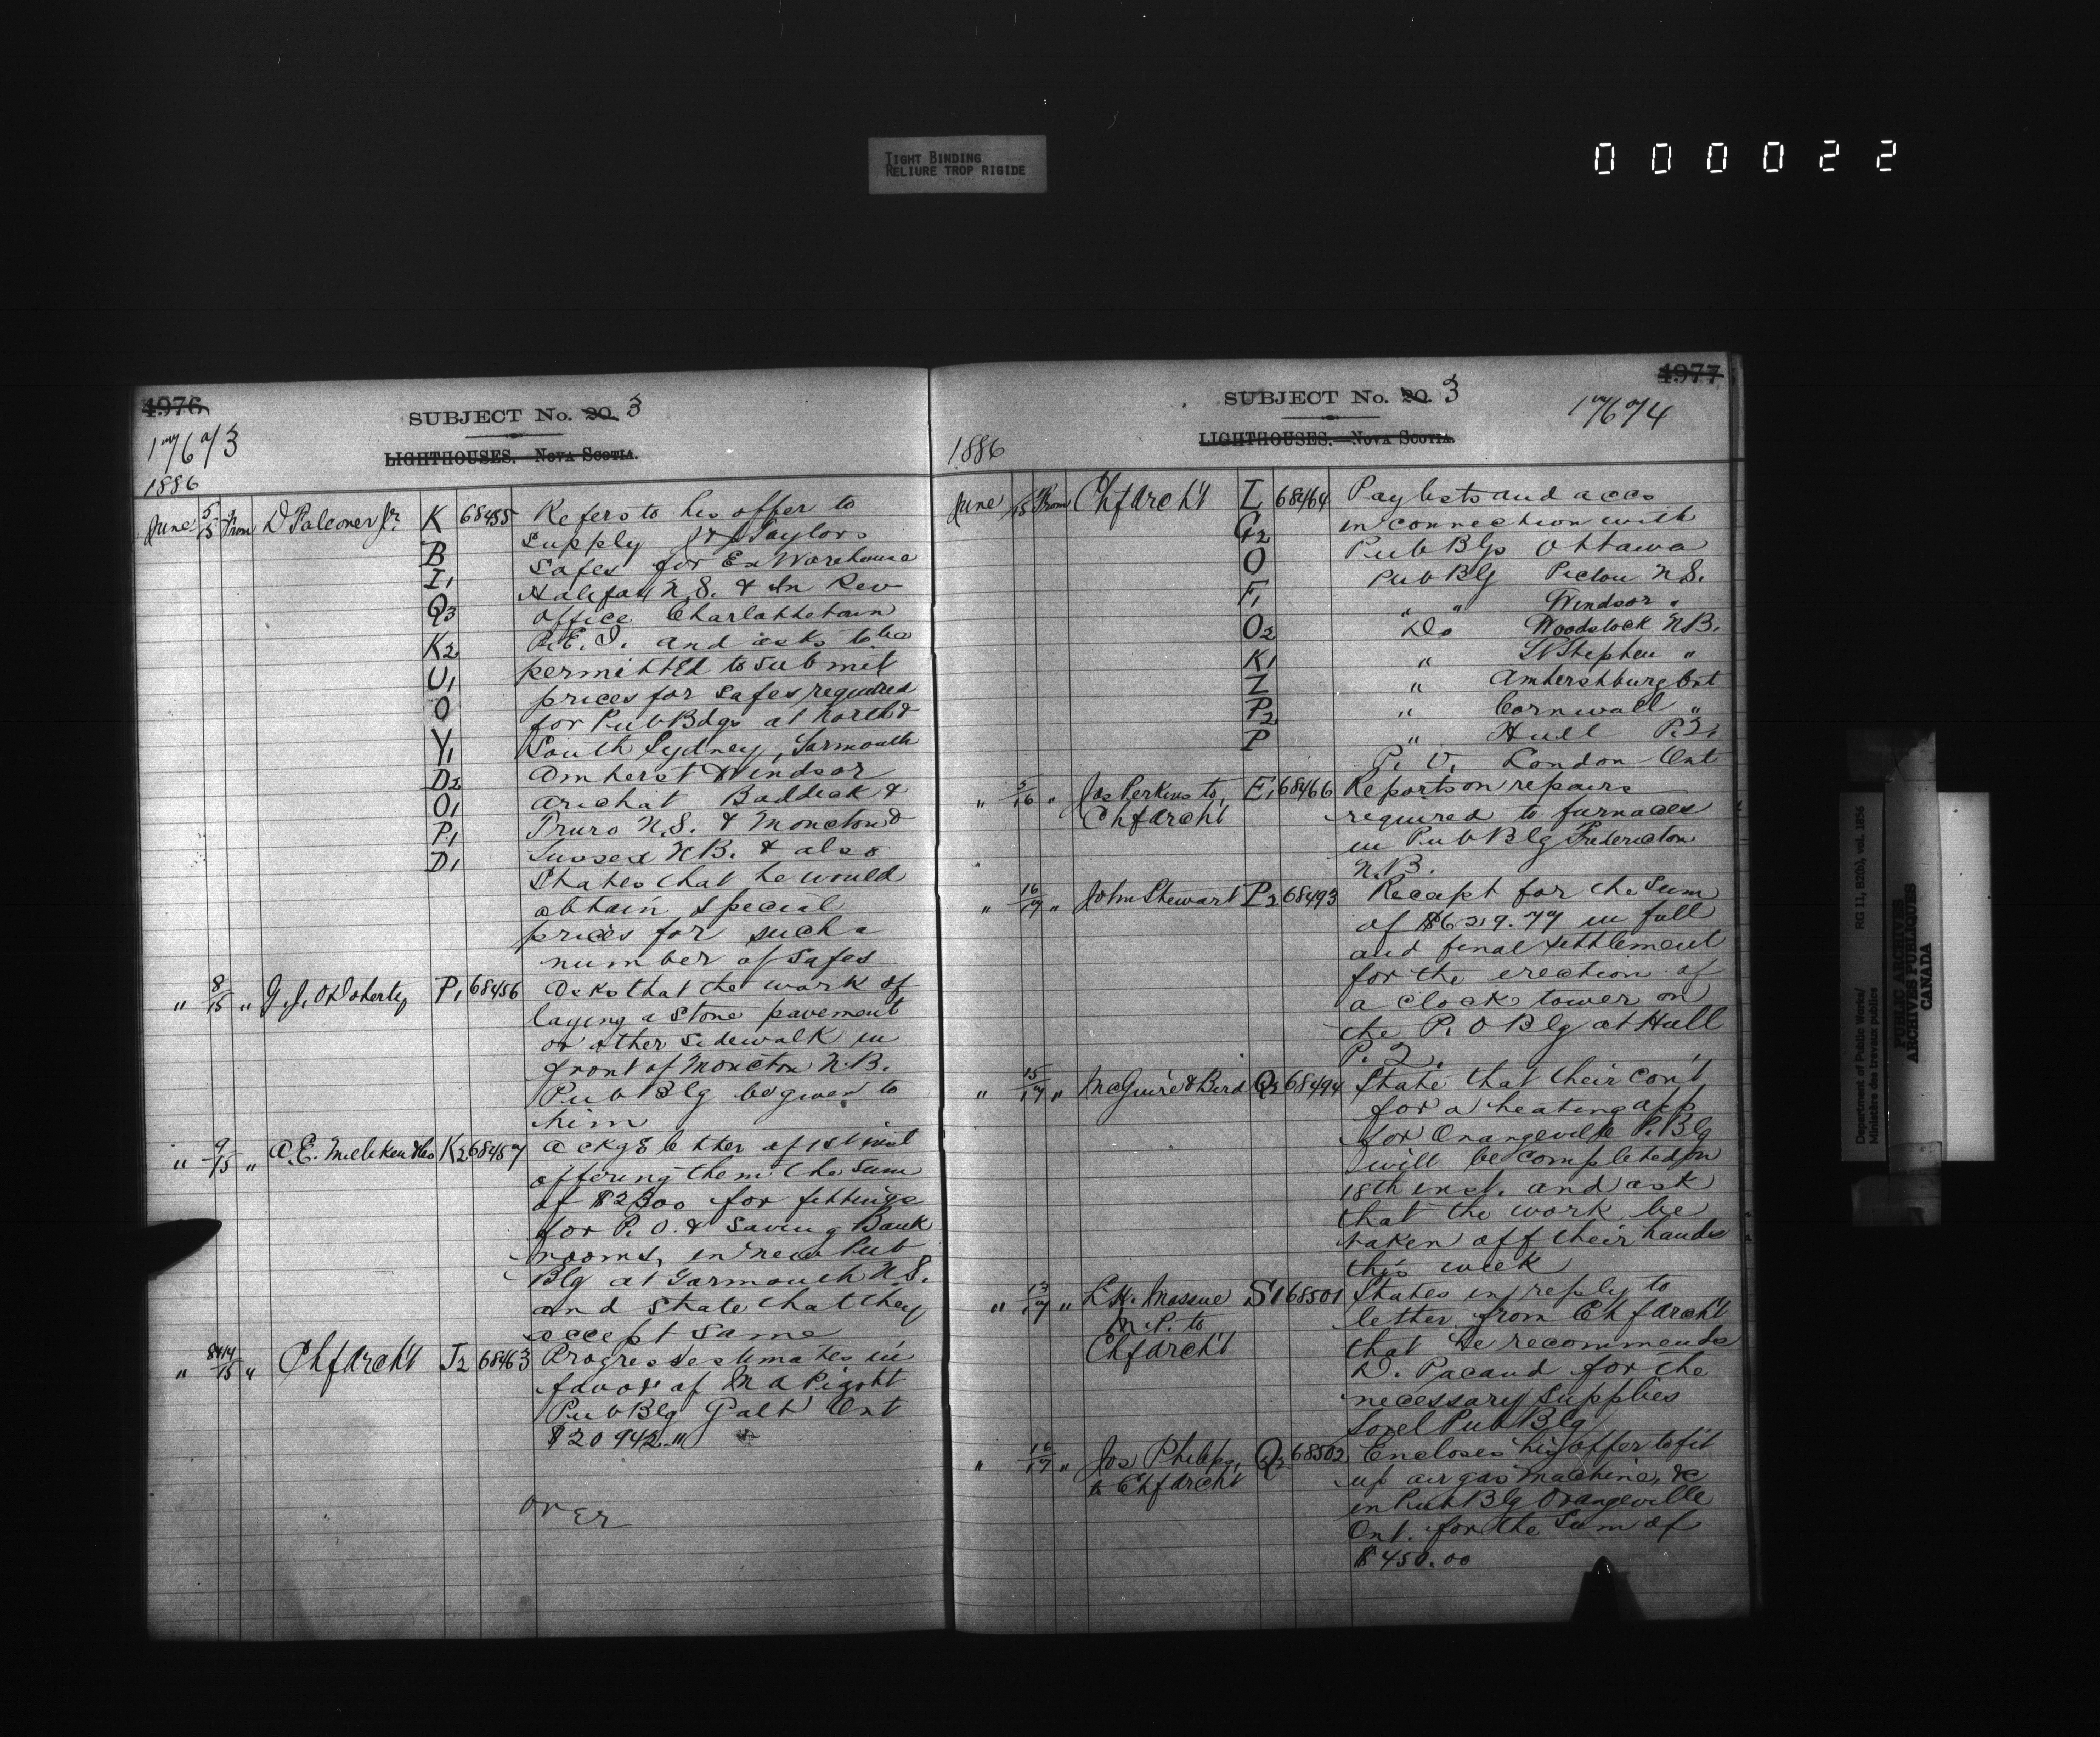 TIGHT BINDING
RELIURE TROP RIGIDE
000022
4976
SUBJECT No. 20. 3
17673
LIGHTHOUSES. NOVA SCOTIA.
1886
June 5/15 From D Falconer Jr. K 68455 Refers to his offer to
supply J & J Taylors
B safes for Ex Warehouse
I1 Halifax N.S. & In Rev
Q3 office Charlottetown
K2 P.E.I. and asks to be
U1 permitted to submit
O prices for safes required
for Pub Bdgs at North &
Y1 South Sydney, Yarmouth
D2 Amherst Windsor
O1 Arichat Baddeck &
P1 Truro N.S. & Moncton &
D1 Sussex N.B. & also
States that he would
obtain special
prices for such a
number of safes
" 8/15 " G. J. O'Doherty P1 68456 Asks that the work of
laying a stone pavement
or other sidewalk in
front of Moncton N.B.
Pub Blg be given to
him
" 9/15 " A. E. Milliken & Co K2 68457 Ackgs letter of 1st inst
offering them the sum
of $2300 for fittings
for P.O. & Saving Bank
rooms, in new Pub
Blg at Yarmouth N.S.
and state that they
accept same
" 8&14/15 " Chf Archt J2 68463 Progress estimates in
favor of M A Pigott
Pub Blg Galt Ont
$20942.11
OVER
4977
SUBJECT No. 20. 3
17674
LIGHTHOUSES.—NOVA SCOTIA.
1886
June /15 From Chf Archt L 68464 Paylists and accs
G2 in connection with
O Pub Blgs Ottawa
Pub Blg Pictou N.S.
F1 " " Windsor "
O2 Do Woodstock N.B.
K1 " St Stephen "
Z " Amherstburg Ont
P2 " Cornwall "
P " Hull P.Q.
P. O. London Ont
" 5/16 " Jos Perkins to E1 68466 Reports on repairs
Chf Archt required to furnaces
in Pub Blg Fredericton
N.B.
" 16/17 " John Stewart P2 68493 Receipt for the sum
of $6219.77 in full
and final settlement
for the erection of
a clock tower on
the P.O Blg at Hull
P.Q.
" 15/17 " McGuire & Bird Q2 68494 State that their con't
for a heating app
for Orangeville P. Blg
will be completed on
18th inst. and ask
that the work be
taken off their hands
this week
" 13/17 " L. H. Massue S1 68501 States in reply to
M.P. to letter from Chf Archt
Chf Archt that he recommends
D. Pacaud for the
necessary supplies
Sorel Pub Blg
" 16/17 " Jos Philips, Q2 68502 Encloses his offer to fit
to Chf Archt up air gas machine, &c
in Pub Blg Orangeville
Ont. for the sum of
$450.00
Department of Public Works/ RG 11, B2(b), vol. 1856
Ministère des travaux publics
PUBLIC ARCHIVES
ARCHIVES PUBLIQUES
CANADA